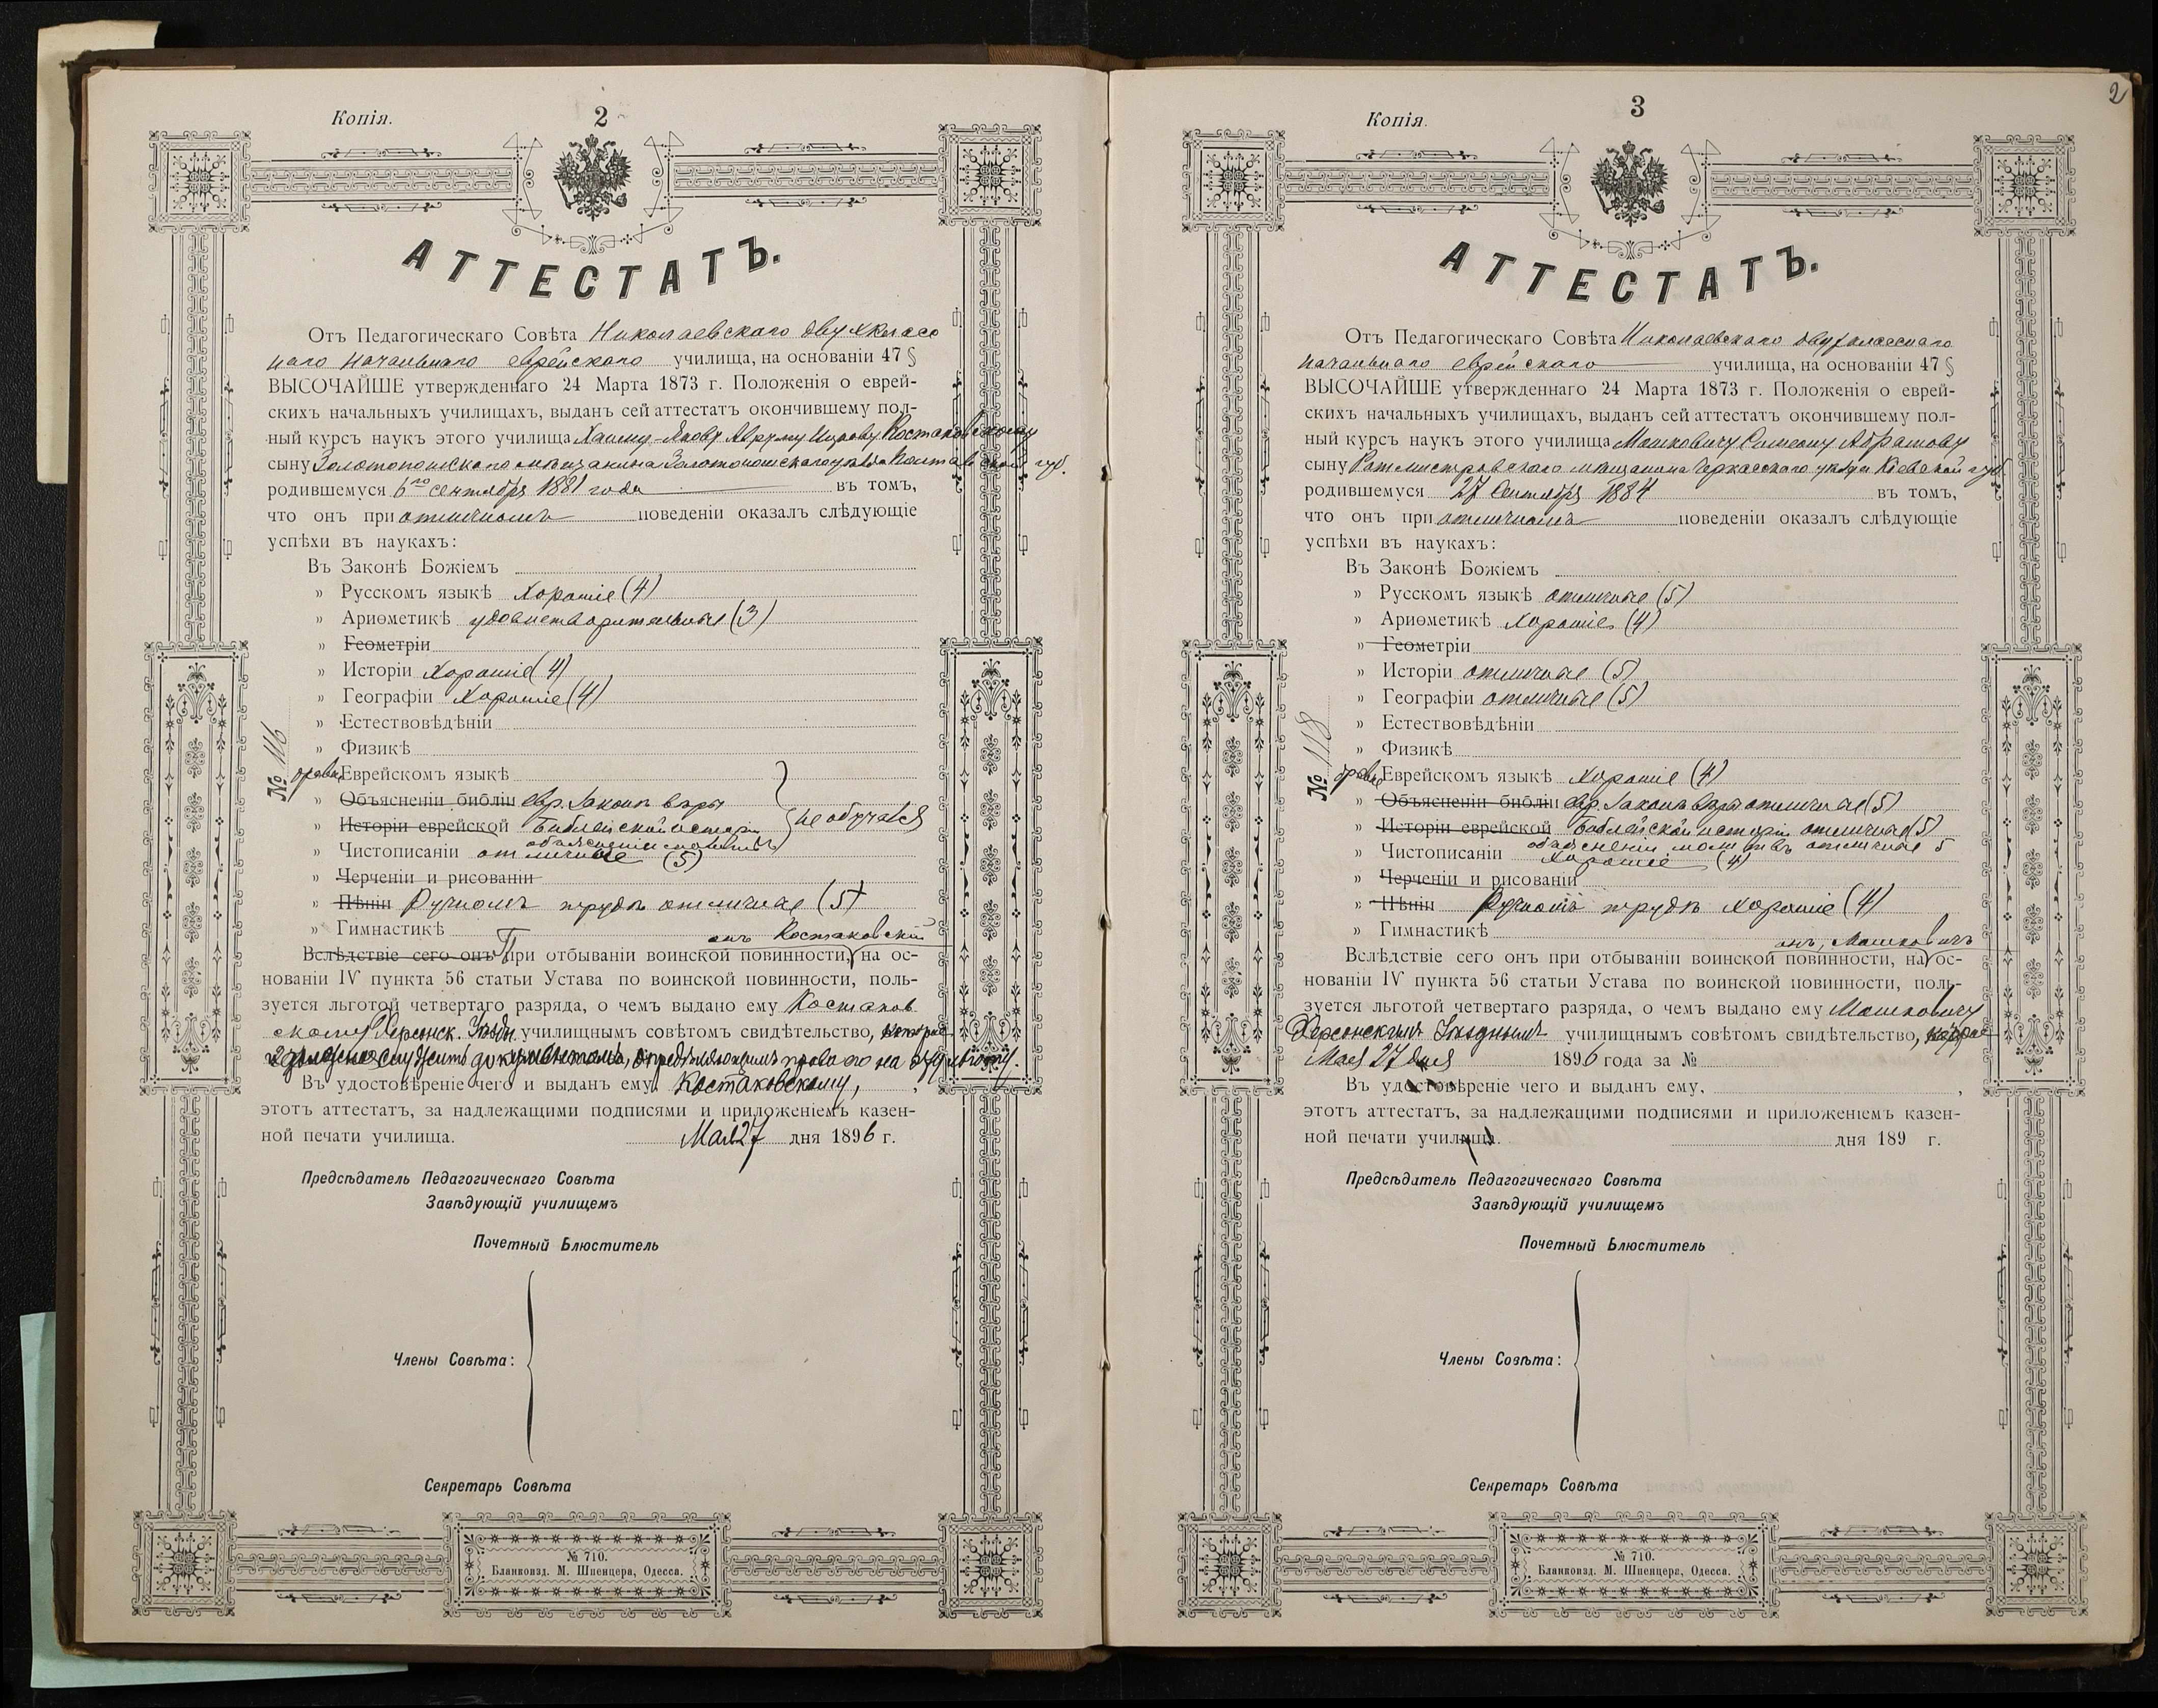 Копія.
2
АТТЕСТАТЪ.
Отъ Педагогическаго Совѣта Николаевскаго двухкласс
наго начальнаго еврейскаго училища, на основаніи 47 §
ВЫСОЧАЙШЕ утвержденнаго 24 Марта 1873 г. Положенія о еврей-
скихъ начальныхъ училищахъ, выданъ сей аттестатъ окончившему пол-
ный курсъ наукъ этого училища Хаиму-Якову Костаковскому
сыну Золотоношскаго мѣщанина Золотоношскаго уѣзда Полтавской губ.
родившемуся 6го сентября 1881 года въ томъ,
что онъ при отличномъ поведеніи оказалъ слѣдующіе
успѣхи въ наукахъ:
Въ Законѣ Божіемъ
» Русскомъ языкѣ хорошіе (4)
» Ариѳметикѣ удовлетворительные (3)
» Геометріи
» Исторіи хорошіе (4)
» Географіи хорошіе (4)
» Естествовѣдѣніи
» Физикѣ
№ 116
древне Еврейскомъ языкѣ
» Объясненіи библіи евр. Законѣ вѣры
» Исторіи еврейской Библейской исторіи
не обучался
объясненіи молитвъ
» Чистописаніи отличные (5)
» Черченіи и рисованіи
» Пѣніи Ручномъ трудѣ отличные (5)
» Гимнастикѣ
онъ Костаковскій
Вслѣдствіе сего онъ При отбываніи воинской повинности, на ос-
нованіи IV пункта 56 статьи Устава по воинской повинности, поль-
зуется льготой четвертаго разряда, о чемъ выдано ему Костаков
скому Херсонск. Уѣздн. училищнымъ совѣтомъ свидѣтельство, которое
и должно служить документомъ, опредѣляющимъ право его на эту льготу.
Въ удостовѣреніе чего и выданъ ему Костаковскому,
этотъ аттестатъ, за надлежащими подписями и приложеніемъ казен-
ной печати училища. Мая 27 дня 1896 г.
Предсѣдатель Педагогическаго Совѣта
Завѣдующій училищемъ
Почетный Блюститель
Члены Совѣта:
Секретарь Совѣта
№ 710.
Бланкоизд. М. Шпенцера, Одесса.
2
Копія.
3
АТТЕСТАТЪ.
Отъ Педагогическаго Совѣта Николаевскаго двухкласснаго
начальнаго еврейскаго училища, на основаніи 47 §
ВЫСОЧАЙШЕ утвержденнаго 24 Марта 1873 г. Положенія о еврей-
скихъ начальныхъ училищахъ, выданъ сей аттестатъ окончившему пол-
ный курсъ наукъ этого училища Мошковичу Симеону Абрамову
сыну Ротмистровскаго мѣщанина Черкасскаго уѣзда Кіевской губ
родившемуся 27 Сентября 1884 въ томъ,
что онъ при отличномъ поведеніи оказалъ слѣдующіе
успѣхи въ наукахъ:
Въ Законѣ Божіемъ
» Русскомъ языкѣ отличные (5)
» Ариѳметикѣ хорошіе (4)
» Геометріи
» Исторіи отличные (5)
» Географіи отличные (5)
» Естествовѣдѣніи
» Физикѣ
№ 118
древне Еврейскомъ языкѣ хорошіе (4)
» Объясненіи библіи евр. Законѣ вѣры отличные (5)
» Исторіи еврейской Библейской исторіи отличные (5)
объясненіи молитвъ отличные 5
» Чистописаніи хорошіе (4)
» Черченіи и рисованіи
» Пѣніи Ручномъ трудѣ хорошіе (4)
» Гимнастикѣ
онъ, Мошковичъ
Вслѣдствіе сего онъ при отбываніи воинской повинности, на ос-
нованіи IV пункта 56 статьи Устава по воинской повинности, поль-
зуется льготой четвертаго разряда, о чемъ выдано ему Мошковичу
Херсонскимъ Уѣзднымъ училищнымъ совѣтомъ свидѣтельство,
Мая 27 дня 1896 года за №
Въ удостовѣреніе чего и выданъ ему,
этотъ аттестатъ, за надлежащими подписями и приложеніемъ казен-
ной печати училища. дня 189 г.
Предсѣдатель Педагогическаго Совѣта
Завѣдующій училищемъ
Почетный Блюститель
Члены Совѣта:
Секретарь Совѣта
№ 710.
Бланкоизд. М. Шпенцера, Одесса.